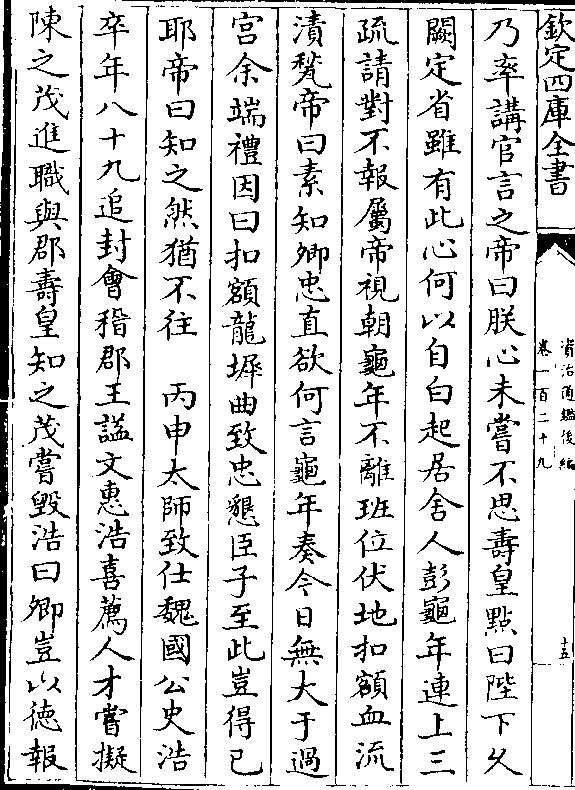 欽定四庫全書
資治通鑑後編
卷一百二十九
十五
乃率講官言之帝曰朕心未嘗不思壽皇點曰陛下久
闕定省雖有此心何以自白起居舍人彭龜年連上三
疏請對不報屬帝視朝龜年不離班位伏地扣額血流
漬甃帝曰素知卿忠直欲何言龜年奏今日無大于過
宫余端禮因曰扣額龍墀曲致忠懇臣子至此豈得已
耶帝曰知之然猶不往　丙申太師致仕魏國公史浩
卒年八十九追封㑹稽郡王謚文惠浩喜薦人才嘗擬
陳之茂進職與郡壽皇知之茂嘗毁浩曰卿豈以徳報